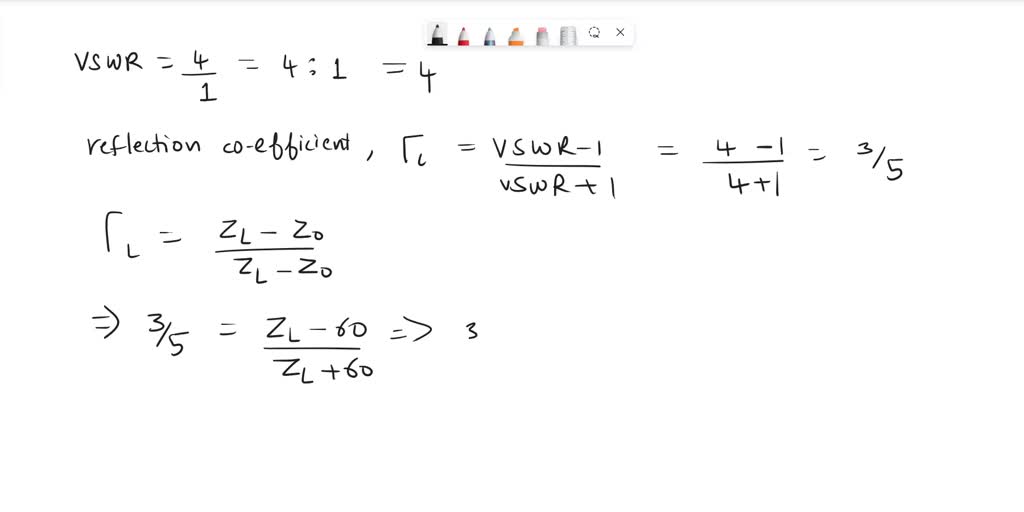 VSWR = 4/1 = 4 : 1 = 4
reflection co-efficient, Γ_L = (VSWR-1)/(VSWR+1) = (4-1)/(4+1) = 3/5
Γ_L = (Z_L - Z_0)/(Z_L - Z_0)
=> 3/5 = (Z_L - 60)/(Z_L + 60) => 3